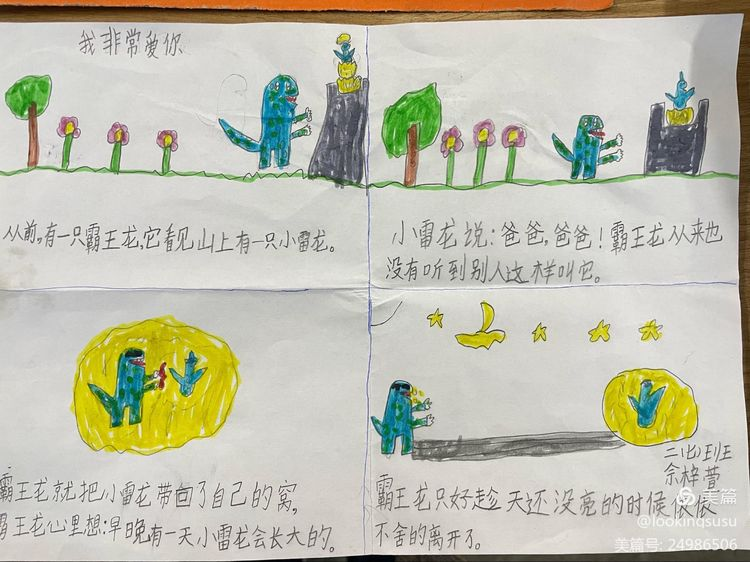 我非常爱你
从前，有一只霸王龙，它看见山上有一只小雷龙。
小雷龙说：爸爸，爸爸！霸王龙从来也
没有听到别人这样叫它。
霸王龙就把小雷龙带回了自己的窝，
霸王龙心里想：早晚有一天小雷龙会长大的。
二（6）班王
佘梓萱
霸王龙只好趁天还没亮的时候依依
不舍的离开了。
美篇
@lookingsusu
美篇号: 24986506